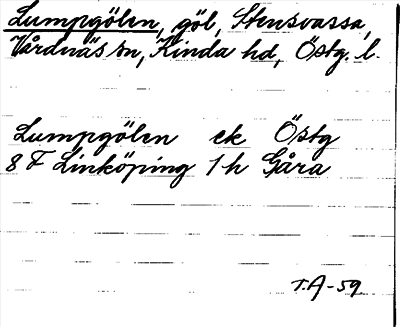 Lumpgölen, göl, Stensvassa,
Vårdnäs sn, Kinda hd, Östg. l.
Lumpgölen ek Östg
8 F Linköping 1 h Gåra
T.A-59